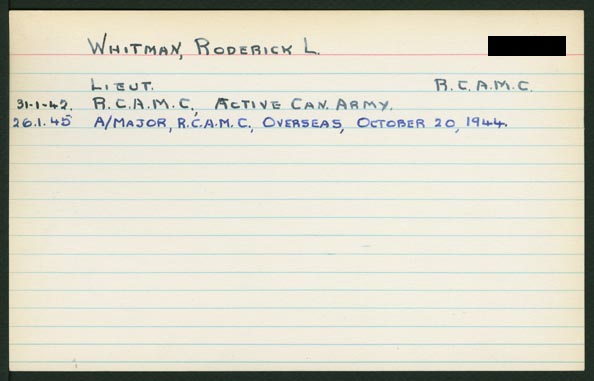 WHITMAN, RODERICK L.
LIEUT. R.C.A.M.C.
31-1-42. R.C.A.M.C., ACTIVE CAN. ARMY.
26.1.45 A/MAJOR, R.C.A.M.C., OVERSEAS, OCTOBER 20, 1944.